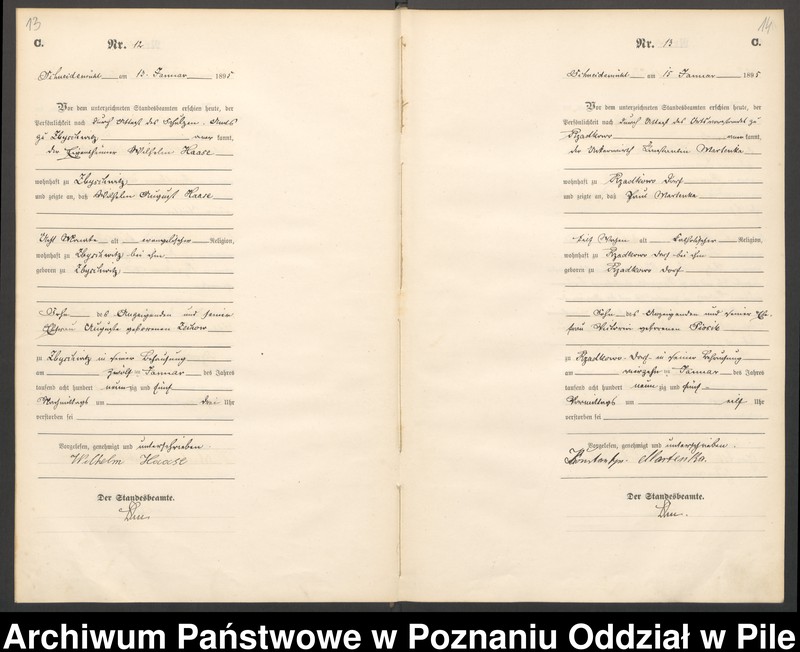 13
C.
Nr. 12
Schneidemühl am 15. Januar 1895
Vor dem unterzeichneten Standesbeamten erschien heute, der
Persönlichkeit nach durch Attest des Schulzen-Amts
zu kannt,
der Eigenthümer Wilhelm Haase
wohnhaft zu
und zeigte an, daß Wilhelm August Haase
acht Monate alt evangelischer Religion,
wohnhaft zu bei ihm
geboren zu
Sohn des Anzeigenden und seiner
Ehefrau Auguste geborenen
zu in seiner Behausung
am zwölften Januar des Jahres
tausend acht hundert neunzig und fünf
Nachmittags um drei Uhr
verstorben sei
Vorgelesen, genehmigt und unterschrieben
Wilhelm Haase
Der Standesbeamte.
14
Nr. 13
C.
Schneidemühl am 15 Januar 1895
Vor dem unterzeichneten Standesbeamten erschien heute, der
Persönlichkeit nach durch Attest des Ortsvorstandes zu
Rzadkowo kannt,
der Unterwirth Martenka
wohnhaft zu Rzadkowo Dorf
und zeigte an, daß Paul Martenka
Wochen alt katholischer Religion,
wohnhaft zu Rzadkowo Dorf bei ihm
geboren zu Rzadkowo Dorf
Sohn des Anzeigenden und seiner Ehe-
frau geborenen
zu Rzadkowo-Dorf in seiner Behausung
am vierzehnten Januar des Jahres
tausend acht hundert neunzig und fünf
Vormittags um elf Uhr
verstorben sei
Vorgelesen, genehmigt und unterschrieben.
Martenka.
Der Standesbeamte.
Archiwum Państwowe w Poznaniu Oddział w Pile